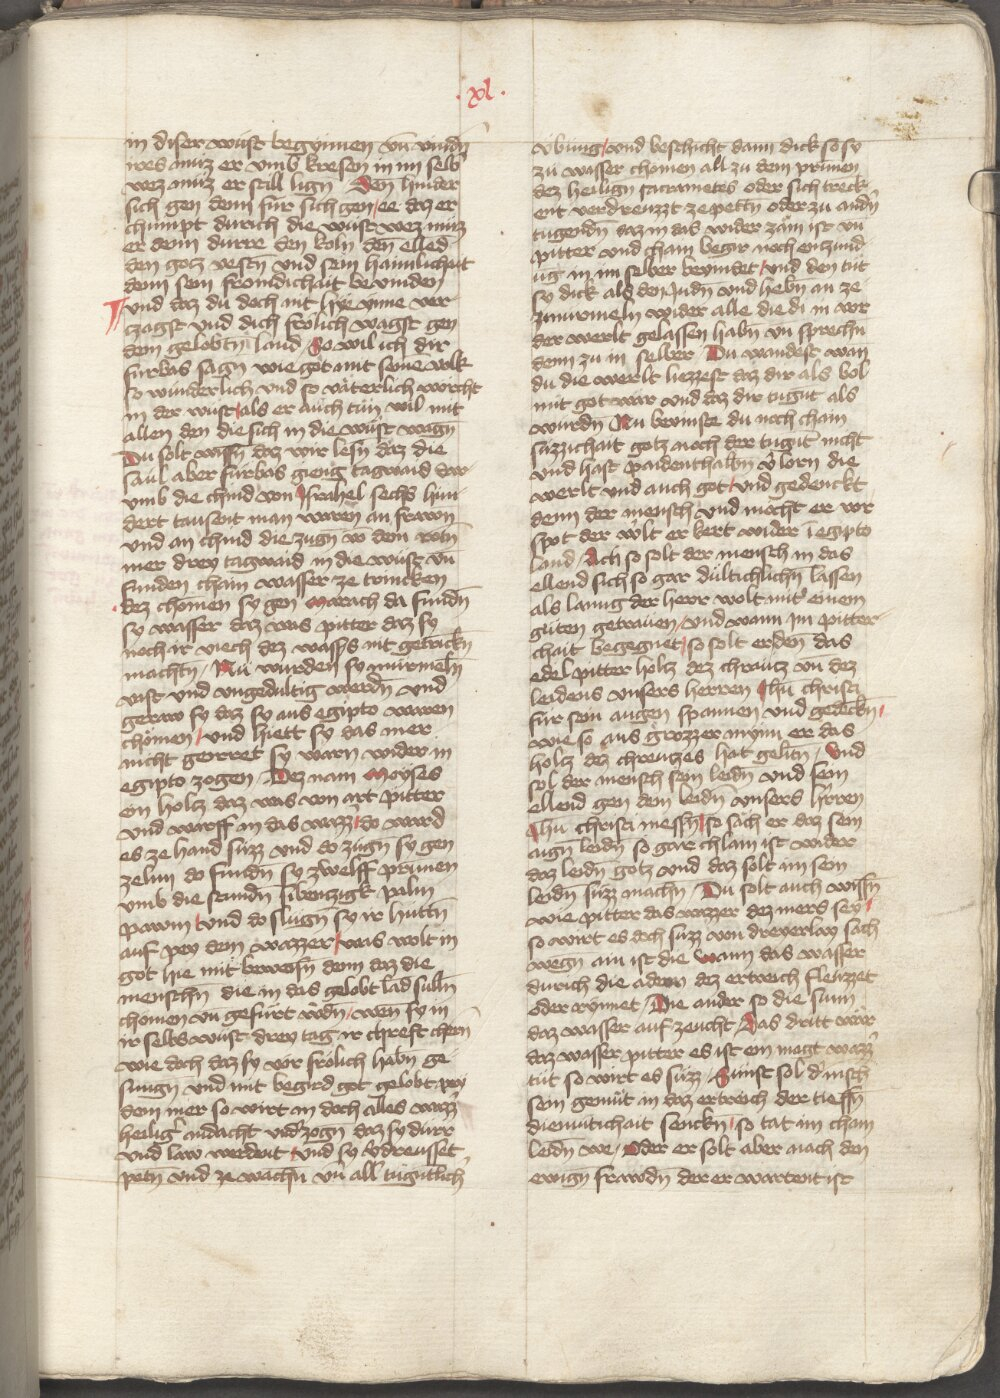 .xl.
in diser wüst begynnen vn̄ vindn̄
wes müz er vmb kresen in im selb
wez müz er still lign̄ Den hinder
sich gen denn für sich gen / ee daz er
chumpt durich die wüst wez müz
er denn durre den koln den ellend
den gotz vestn̄ vnd sein haimlichait
denn sein fromdichait bevinden
¶ vnd daz du doch nit hye ynne ver
czagst vnd dich frölich wagst gen
dem gelobtn̄ land / So wil ich dir
fürbas sagn̄ wie got mit seinē volk
so wunderlich vnd so väterlich würcht
in der wüst / als er auch tün wil mit
allen den die sich in die wüst wagn̄
Du solt wissn̄ daz wir lesn̄ daz die
saul aber fürbas gieng tagwaid dar
vmb die chind von Israhel sechs hun
dert tausent man waren an frawn̄
vnd an chind die zugn̄ vō dem rotn̄
mer drey tagwaid in die wüst vn̄
funden chain wasser ze trincken
dez chomen sy gen Marach da fundn̄
sy wasser daz was pitter daz sy
noch ir viech dez wassers nit getrickn̄
machtn̄ / Nü wurden sy murmeln̄
vast vnd vngedultig werdn̄ vnd
geraw sy daz sy aus egipto waren
chömen / vnd hiett sy das mer
nicht georret sy warn wider in
egipto zogen Dez nam Moyses
ein holtz daz was von art pitter
vnd warff in das wazz̄ / do ward
es ze hand süzz vnd do zugn̄ sy gen
zelim do fundn̄ sy zwelff prunen
vmb die stundn̄ sibenzigk palm
pawm / vnd do slugn̄ sy ir hüttn̄
auf pey dem wazzer / was wolt in
got hie mit beweisn̄ denn daz die
menschn̄ die in das gelobt lād sülln̄
chomen vn̄ gefürt wdn̄ / wen sy in
ir selbs wüst drey tag ir chreft chern̄
wie doch daz sy vor frölich habn̄ ge
sungn̄ vnd mit begird got gelobt pey
dem mer so wirt in doch alles wazz̄
heiliḡ andacht vnd̄zogn̄ daz sy durr
vnd law werdent / vnd sy v̄dreusset
petn̄ vnd ze wachn̄ vn̄ all tugūtlich
vbung / vnd beschicht dann dick so sy
zu wasser chomen all zu dem prunen
dez heilign̄ sacrametes oder sich treck
ent verdreuzzt ze pettn̄ oder zu andn̄
tugendn̄ daz in das wider zäm ist vn̄
pitter vnd cham begir noch enzund
ug in im selber bevindet / vnd den tut
sy dick als den Judn̄ vnd hebn̄ an ze
murmeln wider alle die di in vor
der werlt gelassen habn̄ vn̄ sprechn̄
denn zu in selber / Du wandest wan
du die werlt liezzest daz dir als bol
mit got wär vnd daz dir tugūt als
wurdn̄ Nu bevinste du noch chain
süzzichait gotz noch der tugūt nicht
vnd hast paidenthalbn̄ v̄lorn die
werlt vnd auch got / vnd gedenckt
denn der mensch vnd möcht er vor
spot der wlt er kert wider ī egipto
land / Ach so solt der mensch in das
ellend sich so gar dültichlichn̄ lassen
als lanng der herr wolt mit einem
güten getrauen / vnd wann im pitter
chait begegnet / so solt er den das
edel pitter holtz dez chrautz vn̄ dez
leidens vnsers herren Jhū christi
für sein augen spannen vnd gedēckn̄ /
wie so aus grozzer mynn er das
holtz dez chreutzes hat gelitn̄ / Vnd
sol der mensch sein leidn̄ vnd sein
ellend gen dem leidn̄ vnsers hrren
Jhū christi messn̄ / so sach er daz sein
aign̄ leidn̄ so gar chlain ist wider
daz leidn̄ gotz vnd daz solt im sein
leidn̄ süzz machn̄ Du solt auch wissn̄
wie pitter das wazzer dez mers sey /
so wirt es doch süzz von dreyerlay sach
wegn̄ ain ist die wann das wasser
durich die adern dez ertreich fleuzzet
oder rynnet / Die ander so die sunn
daz wasser auf zeucht / Das dritt wör
daz wasser pitter es ist ein magt wazz̄
tüt so wirt es süzz / Sunst sol d̄ msch
sein gemüt in daz ertreich der tieffn̄
diemütichait senckn̄ / so tät im chain
leidn̄ we / Oder er solt aber nach den
ewign̄ frawdn̄ der er wartent ist